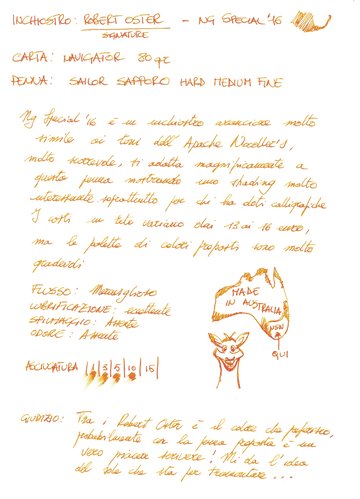 INCHIOSTRO: ROBERT OSTER - NG SPECIAL '16
SIGNATURE
CARTA: NAVIGATOR 80 gr
PENNA: SAILOR SAPPORO HARD MEDIUM FINE
Ng Special '16 è un inchiostro arancione molto
simile ai toni dell'Apache Noodler's,
molto scorrevole, si adatta magnificamente a
questo penna mostrando uno shading molto
interessante soprattutto per chi ha doti calligrafiche
I costi in rete variano dai 13 ai 16 euro,
ma le palette di colori proposti sono molto
gradevoli
FLUSSO: Meraviglioso
LUBRIFICAZIONE: eccellente
SPIUMAGGIO: Assente
ODORE: Assente
MADE
IN AUSTRALIA
NSW
QUI
ASCIUGATURA 1 3 5 10 15
GIUDIZIO: Tra i Robert Oster è il colore che preferisco,
probabilmente con la penna proposta è un
vero piacere scrivere! Mi dà l'idea
del sole che sta per tramontare...